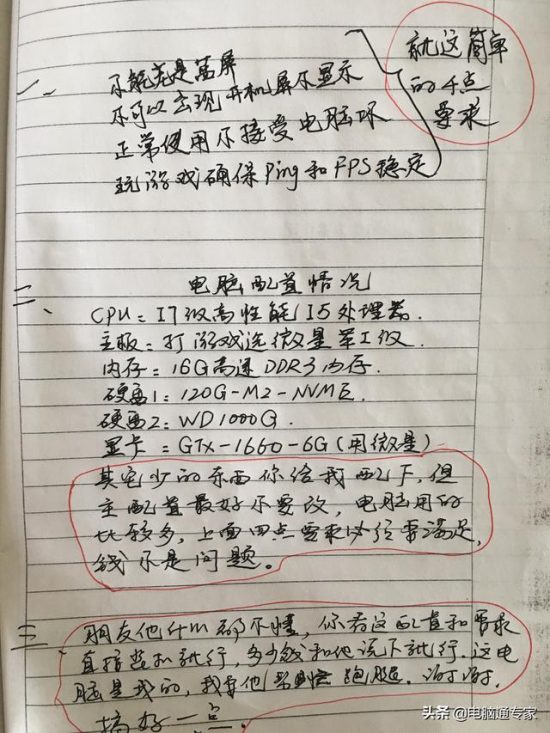 一、
不能老是蓝屏
不可以出现开机屏不显示
正常使用不接受电脑坏
玩游戏确保Ping和FPS稳定
就这简单
的4点
要求
二、
电脑配置情况
CPU：I7级高性能I5处理器.
主版：打游戏选微星军工级
内存：16G高速DDR3内存.
硬盘1：120G-M2-NVME.
硬盘2：WD1000G.
显卡：GTX-1660-6G(用微星)
其它少的东西你给我配下，但
主配置最好不要改，电脑用的
比较多，上面四点要求必须要满足，
钱不是问题。
三、
朋友他什么都不懂，你看这配置和要求
直接装机就行，多少钱和他说下就行.这电
脑是我的，我拿他 跑腿. 谢谢.
搞好一点.
头条 @电脑通专家